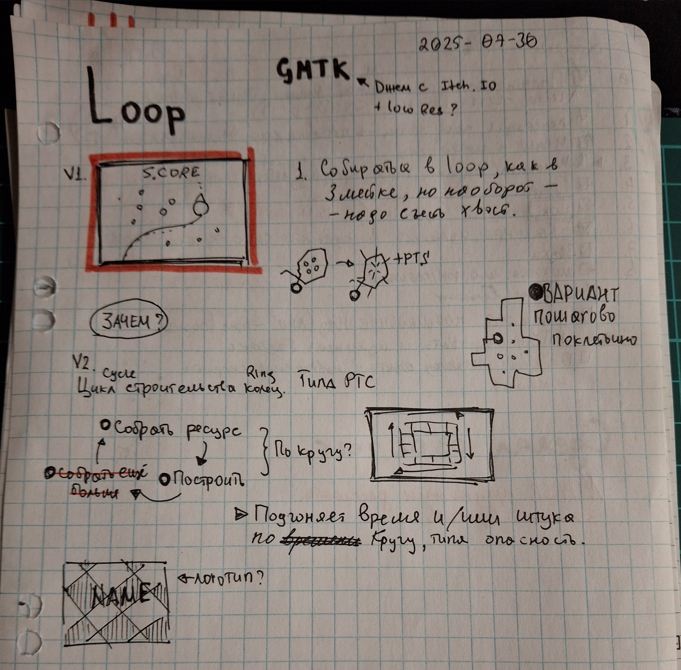 2025-07-30
GMTK
Джем с Itch.IO
+ low Res?
Loop
V1.
SCORE
1. Собираться в loop, как в
Змейке, но наоборот -
- надо съесть хвост.
+PTS
ЗАЧЕМ?
ВАРИАНТ
пошагово
поклеточно
V2.
Cycle
Ring
Цикл строительства колец. Типа РТС
Собрать ресурс
Построить
собрать ещё
больше
По кругу?
Подгоняет время и/или штука
по времени кругу, типа опасность.
NAME
логотип?